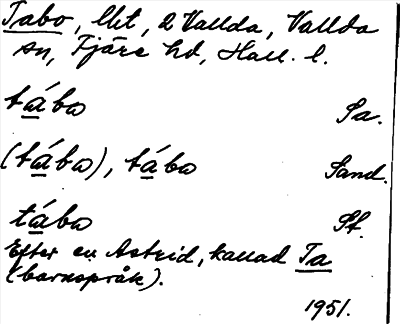 Tabo, lht, 2 Vallda, Vallda
sn, Fjäre hd, Hall. l.
tábo Sa.
(tábo), tábo Sand.
tábo St.
Efter en Astrid, kallad Ta
(barnspråk).
1951.